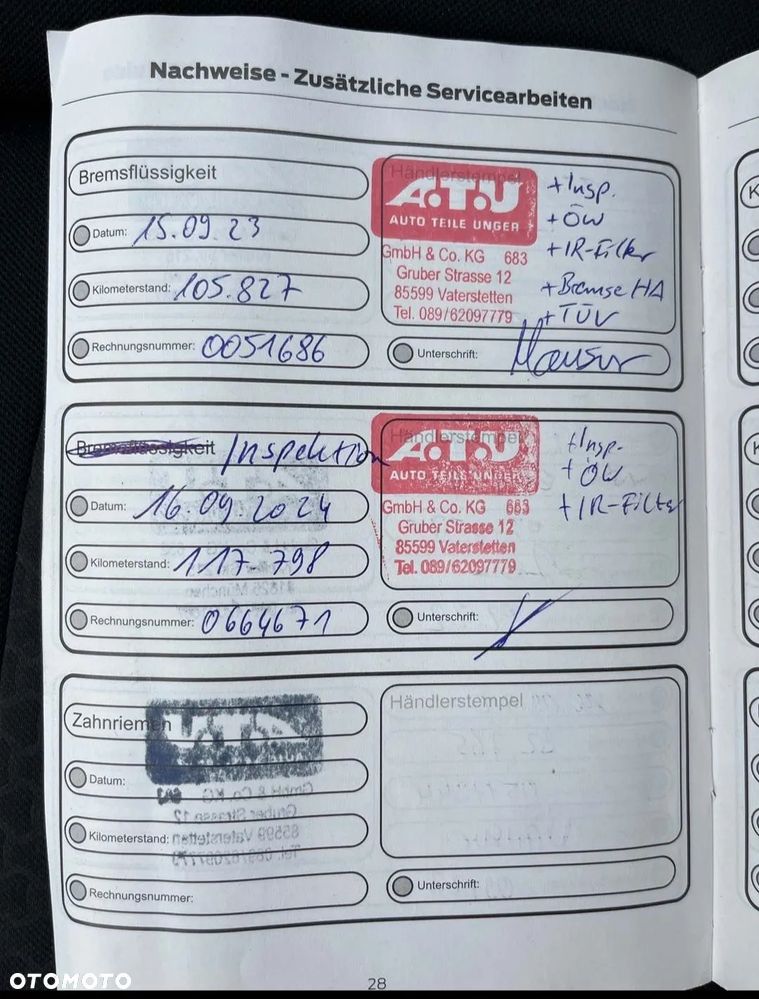 Nachweise - Zusätzliche Servicearbeiten
Bremsflüssigkeit
Datum: 15.09.23
Kilometerstand: 105.827
Rechnungsnummer: 0051686
Händlerstempel
A.T.U
AUTO TEILE UNGER
GmbH & Co. KG 683
Gruber Strasse 12
85599 Vaterstetten
Tel. 089/62097779
+ Insp.
+ ÖW
+ IR-Filter
+ Bremse HA
+ TÜV
Unterschrift:
Bremsflüssigkeit Inspektion
Datum: 16.09.2024
Kilometerstand: 117.798
Rechnungsnummer: 0664671
Händlerstempel
A.T.U
AUTO TEILE UNGER
GmbH & Co. KG 683
Gruber Strasse 12
85599 Vaterstetten
Tel. 089/62097779
+ Insp.
+ ÖW
+ IR-Filter
Unterschrift:
Zahnriemen
Datum:
Kilometerstand:
Rechnungsnummer:
Händlerstempel
Unterschrift:
28
OTOMOTO